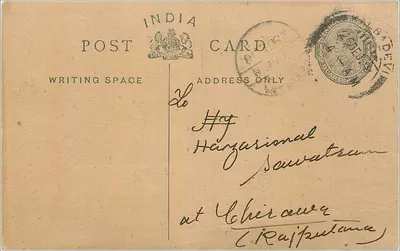 INDIA
POST CARD
WRITING SPACE
ADDRESS ONLY
KALBADEVI
To
Hy
Hanzarimal
Sawatram
at Chirawa
(Rajputana)